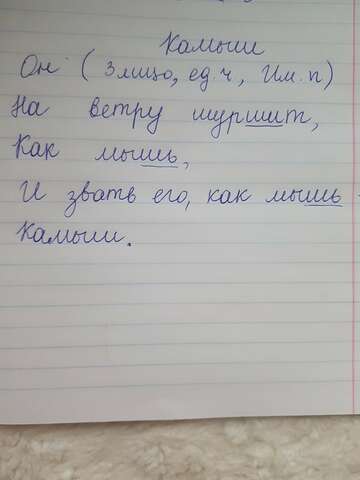 Камыш
Он (3 лицо, ед.ч, Им.п)
На ветру шуршит,
Как мышь,
И звать его, как мышь -
Камыш.